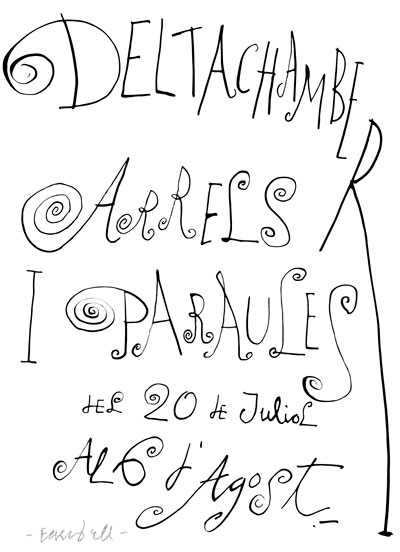 DELTACHAMBER
ARRELS
I PARAULES
DEL 20 DE JULIOL
AL 6 d'AGOST.